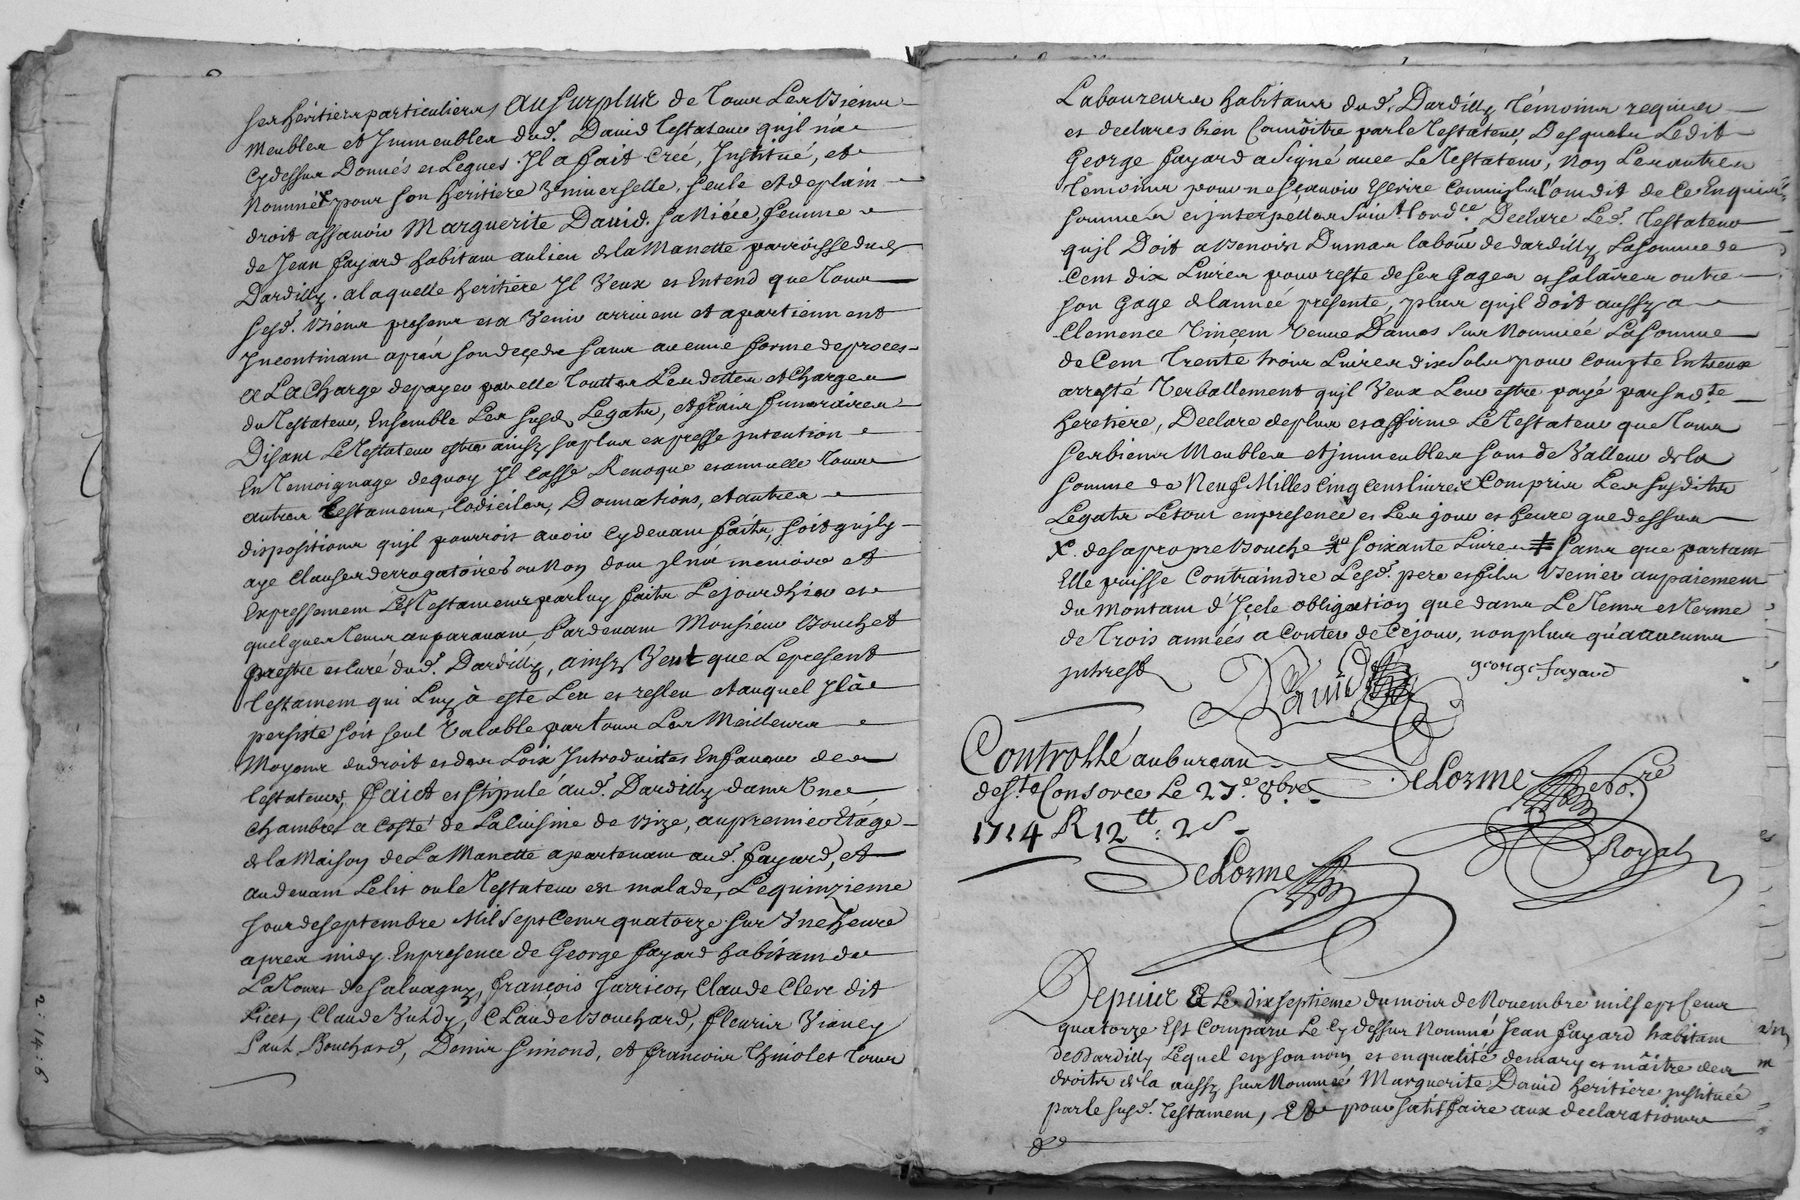 ses héritiers particuliers, Au surplus de Tous Les Biens
Meubles et Immeubles dud. David Testateur qu'il n'a
Cy dessus Donnés et Legues. Il a fait Créé, Institué, et
Nommée pour son heritiere Universelle, seule et de plain
droit assavoir Marguerite David sa Niéce femme
de Jean fayard habitant au lieu de la Manette parroisse dud
Dardilly. a laquelle heritiere Il Veux et Entend que Tous
sesd. Biens presens et a Venir arrivent et apartiennent
Incontinant aprés son deçeds sans aucune forme de proces
a La Charge de payer par elle Touttes Les dettes et Charges
du Testateur, Ensemble Les susd. Legats, et frais funeraires
Disant Le Testateur estre ainsy sa plus expresse intention
En Temoignage de quoy Il Casse Revoque et annulle Tous
autres Testamens, Codiciles, Donnations, et autres
dispositions qu'il pourroit avoir Cy devant faits, soit qu'il y
aye Clauses derrogatoires ou Non dont il n'a memoire et
Expressement Les Testamens par luy faits Le jourdhier et
quelques Tems auparavant Pardevant Monsieur Bouchet
prestre et Curé dud. Dardilly, ainsy Veut que Le present
Testament qui Luy à este Leu et releu et auquel Il à
persisté soit seul Valable par tous Les Meilleurs
Moyens du droit et des Loix Introduittes En faveur des
Testateurs, faict et stipulé aud. Dardilly dans Une
Chambre a Costé de La Cuisine de Bize, au premier Etáge
de la Maison de La Manette apartenant aud. fayard, et
au devant Le lit ou le Testateur est malade, Le quinzieme
Jour de septembre Mil Sept Cens quatorze sur Une heure
apres midy En presence de George fayard habitant de
La Tour de Salvagny, françois Jarricot, Claude Clerc dit
Claude, Claude Bouchard, fleuris Vianey
Paul Bouchard, Denis Simond, et francois Tous
Laboureurs habitans dud. Dardilly Témoins requis
et declarés bien Connoitre par le Testateur, Desquels Ledit
George fayard a Signé avec Le Testateur, Non Les autres
Temoins pour ne sçavoir Escrire Comme ils l'ont dit de Ce Enquis
sommés et interpellés suivt l'ordce. Declare Led. Testateur
qu'il Doit a Benoist Dumas labour de dardilly La somme de
Cent dix Livres pour reste de ses Gages et salaires outre
son Gage de l'année présente, plus qu'il doit aussy a
Clemence Vinçent Veuve Damas sur Nommée La somme
de Cent Trente trois Livres dix sols pour Compte Entreux
arresté Verballement qu'il Veux Leur estre payé par sadte
heretiere, Declare de plus et affirme Le Testateur que Tous
ses biens Meubles et immeubles sont de Valleur de la
somme de Neuf Milles Cinq Cens livres Compris Les susdits
Légats Le tout en presence et Les jour et heure que dessus
X. de sa propre Bouche X soixante Livres ‡ sans que partant
Elle puisse Contraindre Lesd. pere et fils Benier au paiement
du Montant d'Icele obligation que dans Le Tems et Terme
de Trois années a Conter de Céjour, non plus qu'a aucuns
intrest
David
george fayard
Controllé au bureau
de ste Consorce Le 27e 8bre
1714 R 12tt: 2s
DeLorme
DeLorme No.re
Royal
Depuis & Le dix septieme du mois de Novembre mil sept Cens
quatorze Est Comparu Le Cy dessus Nommé Jean fayard habitant
de Dardilly Lequel en son nom et en qualité de mary et maître des
droits de la aussy sus Nommée Marguerite David heritiere instituée
par le susd. Testament, et pour satisfaire aux declarations
2:14:6